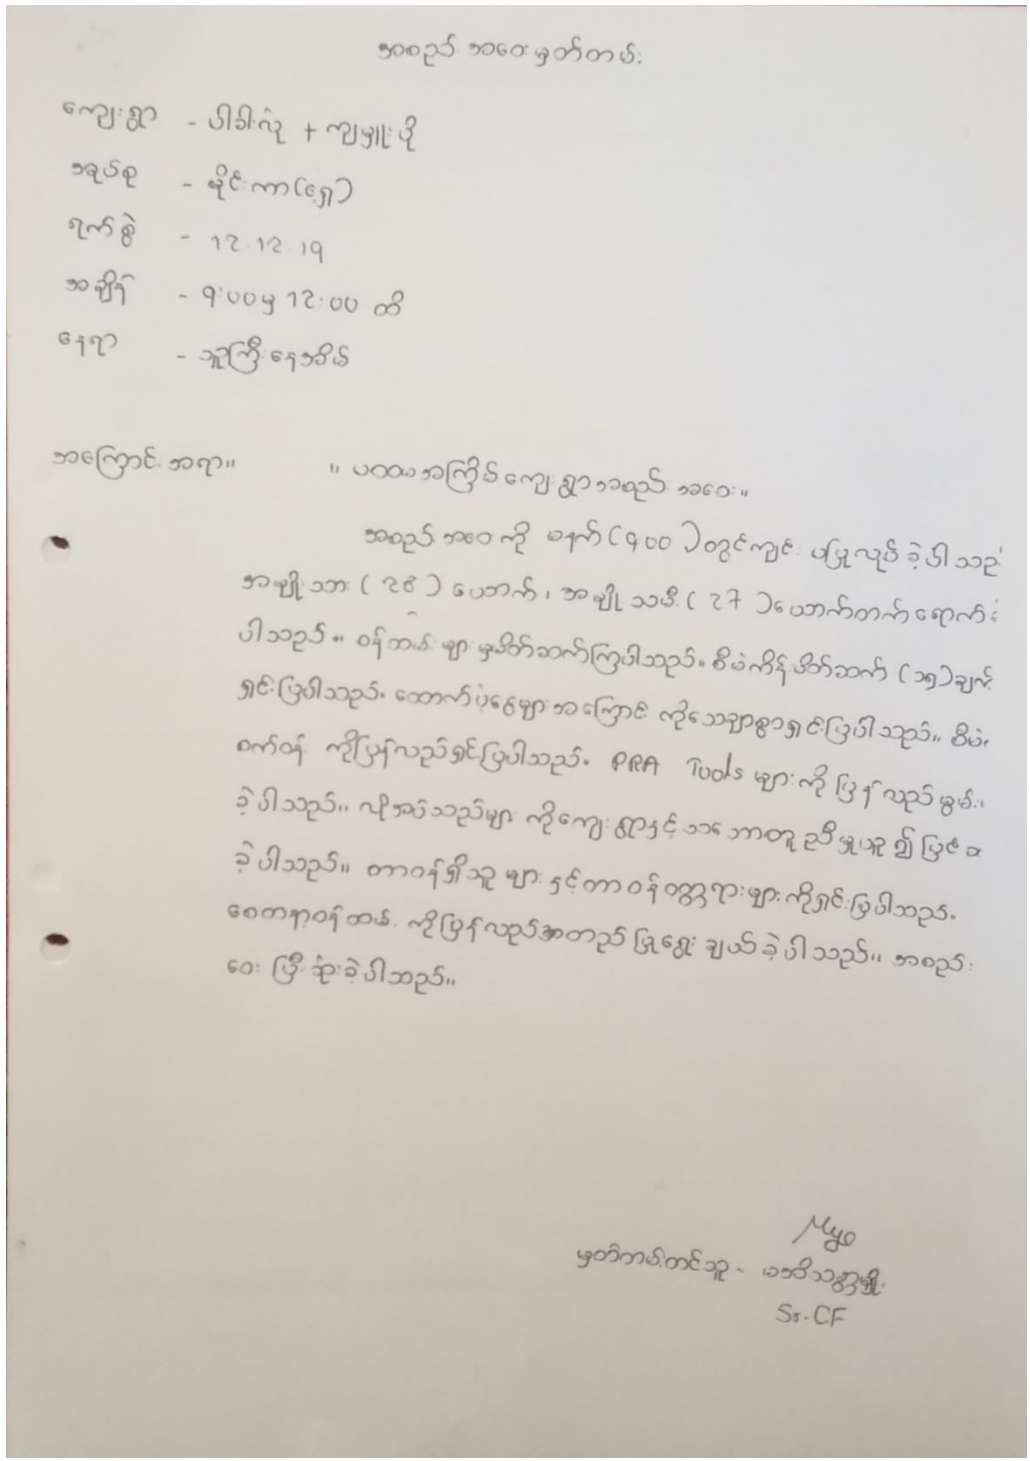 အစည်းအဝေးမှတ်တမ်း
ကျေးရွာ - ပါခါးလုံ + ကျမျှူးပို
အုပ်စု - မိုင်းကာ(ရှေ့)
ရက်စွဲ - 12.12.19
အချိန် - 9:00မှ 12:00 ထိ
နေရာ - သူကြီးနေအိမ်
အကြောင်းအရာ။ "ပထမအကြိမ်ကျေးရွာအစည်းအဝေး"
အစည်းအဝေးကို မနက်(9:00)တွင်ကျင်းပပြုလုပ်ခဲ့ပါသည်
အမျိုးသား(28)ယောက်၊ အမျိုးသမီး(27)ယောက်တက်ရောက်
ပါသည်။ ဝန်ထမ်းများမှမိတ်ဆက်ကြပါသည်။ စီမံကိန်းမိတ်ဆက်(၁၅)ချက်
ရှင်းပြပါသည်။ ထောက်ပံ့ငွေများအကြောင်းကိုသေချာစွာရှင်းပြပါသည်။ စီမံ
စက်ဝန်းကိုပြန်လည်ရှင်းပြပါသည်။ PRA Tools များကိုပြန်လည်မွမ်း
ခဲ့ပါသည်။ လိုအပ်သည်များကိုကျေးရွာနှင့်သဘောတူညီမှုယူ၍ပြင်ဆ
ခဲ့ပါသည်။ တာဝန်ရှိသူများနှင့်တာဝန်ဝတ္တရားများကိုရှင်းပြပါသည်။
စေတနာ့ဝန်ထမ်းကိုပြန်လည်အတည်ပြုရွေးချယ်ခဲ့ပါသည်။ အစည်း
ဝေးပြီးဆုံးခဲ့ပါသည်။
Myo
မှတ်တမ်းတင်သူ - မအိသန္တာမျိုး
Sr.CF